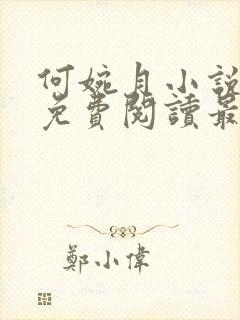 何婉月小說
免費閱讀最
鄭小偉